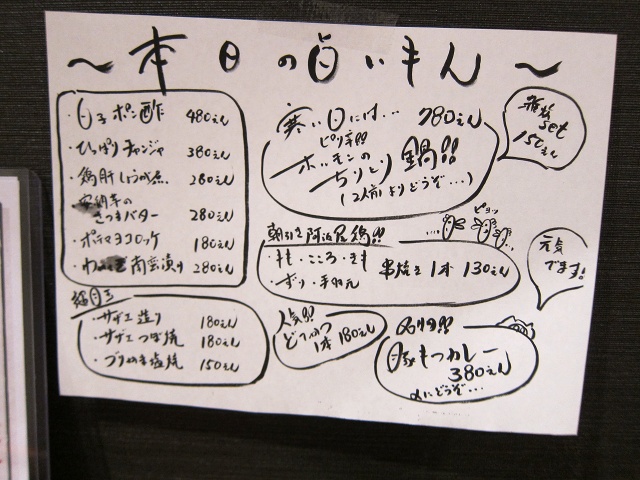 ～本日の白いもん～
・白子ポン酢 480えん
・ひっぱりチャンジャ 380えん
・鶏肝しょうが煮 280えん
・安納芋の
さつまバター 280えん
・ポテマヨコロッケ 180えん
・わ 南蛮漬け 280えん
寒い日には… 780えん
ピリ辛!!
ホルモンの
ちりとり鍋!!
(2人前よりどうぞ…)
雑炊
set
150えん
朝引き阿波尾鶏!!
ピヨッ
・もも・こころ・きも
・ずり・手羽元
串焼き1本 130えん
元気
でます!
・サザエ造り 180えん
・サザエつぼ焼 180えん
・ブリかま塩焼 150えん
人気!!
どてやつ
1本 180えん
名物!!
豚もつカレー
380えん
〆にどうぞ…